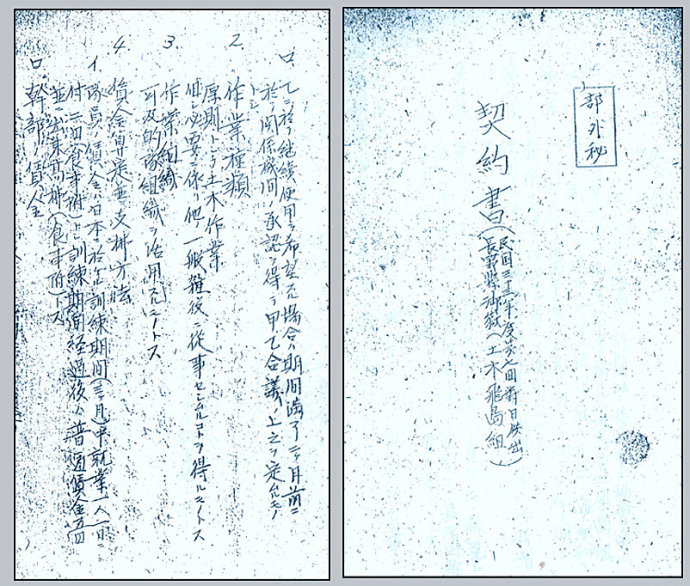 部外秘
契約書
(民国三十三年度第七回対日供出)
(長野県御嶽(土木飛島組)
ロ 乙ニ於テ継続使用ヲ希望スル場合ハ期間満了二ヶ月前ニ
於テ関係機関ノ承認ヲ得テ甲乙合議ノ上之ヲ定ムルモノトシ
2. 作業種類
原則トシテ土木作業
但シ必要ニ依リ他ノ一般雑役ニ従事セシムルコトヲ得ルコトトス
3. 作業組織
可及的隊組織ヲ活用スルコトトス
4. 賃金算定並支払方法
イ 隊員ノ賃金ハ日本ニ於ケル訓練期間(三ヶ月)中就業一人一日ニ
付二円(食事附)トシ訓練期間経過後ハ普通賃金五円
並ニ出来高払(食事附)トス
ロ 幹部ノ賃金